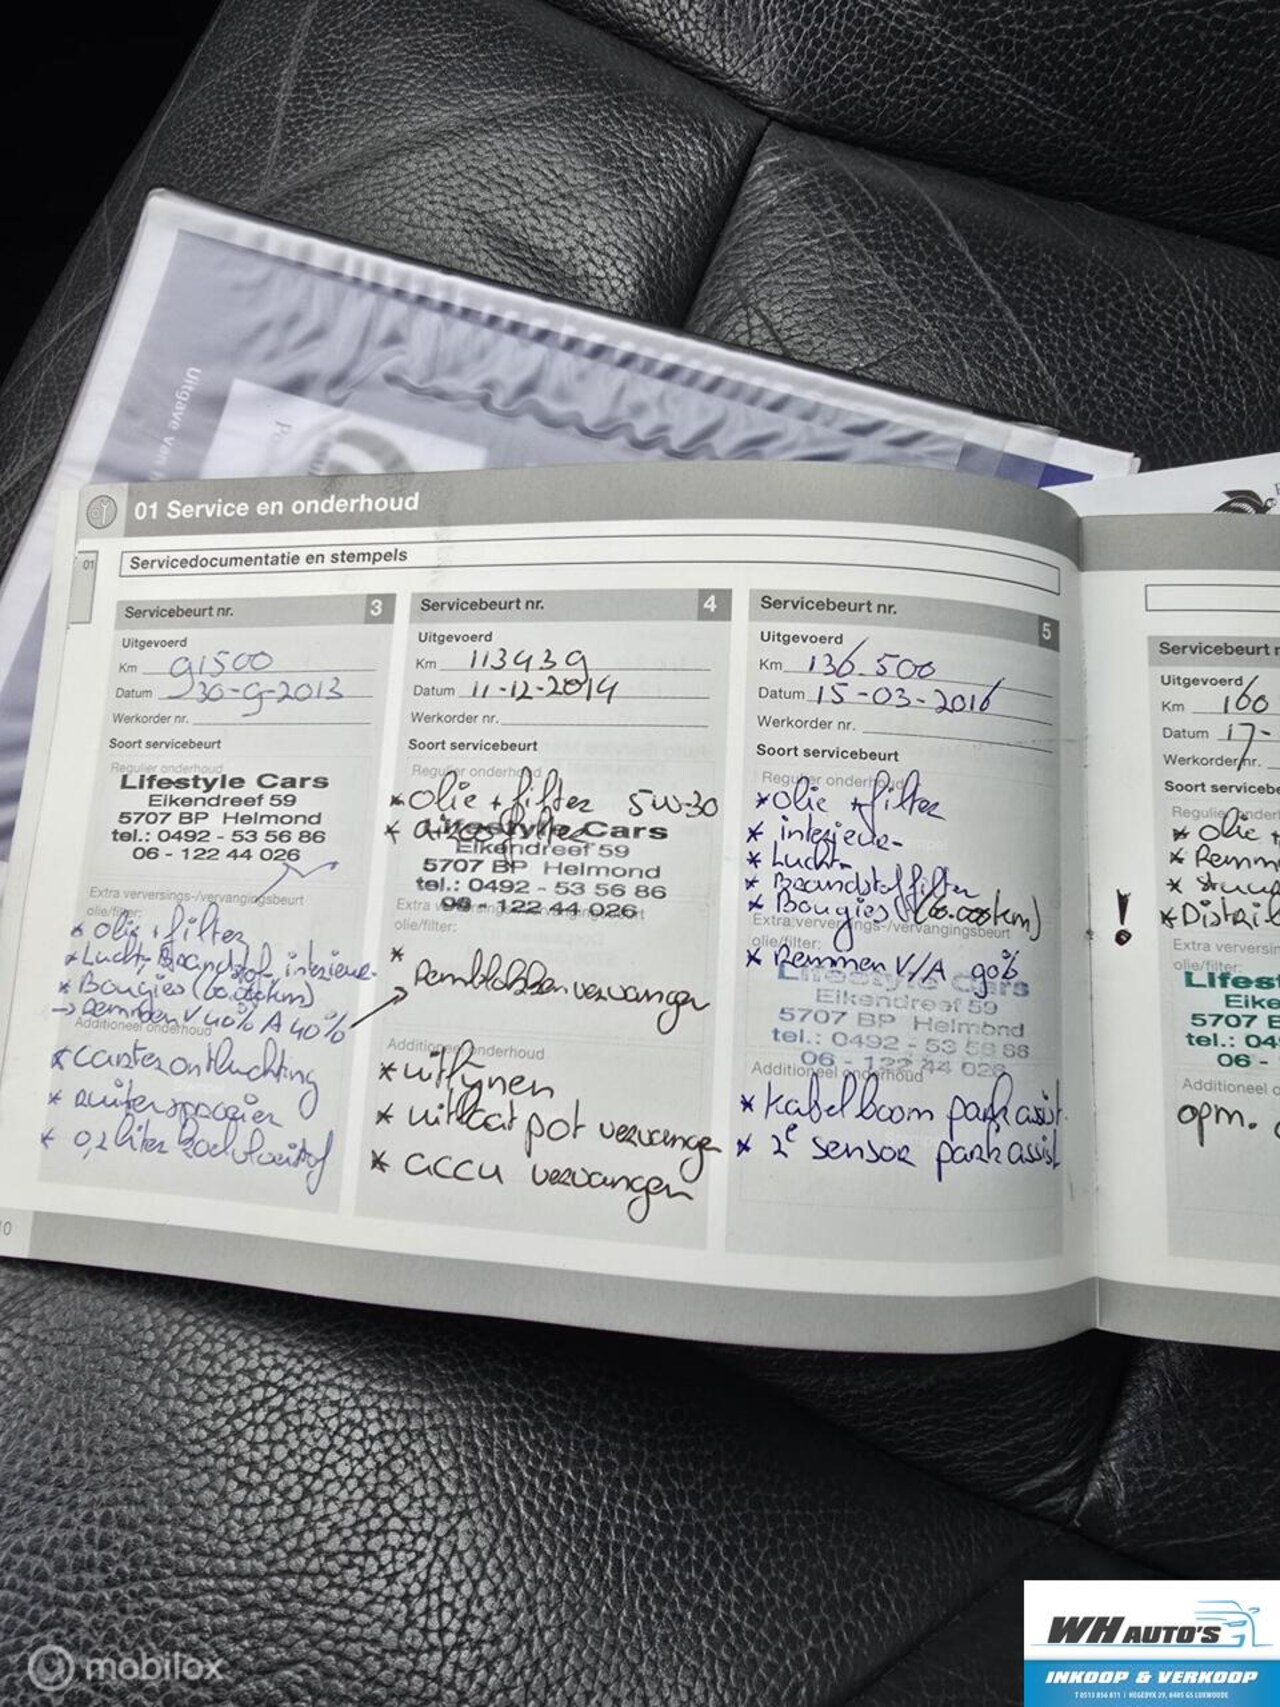 Uitgave van
01 Service en onderhoud
01
Servicedocumentatie en stempels
Servicebeurt nr. 3
Uitgevoerd
Km 91500
Datum 30-9-2013
Werkorder nr.
Soort servicebeurt
Regulier onderhoud
Lifestyle Cars
Eikendreef 59
5707 BP Helmond
tel.: 0492 - 53 56 86
06 - 122 44 026
Extra verversings-/vervangingsbeurt
olie/filter:
* olie + filter
* Lucht, Brandstof, interieur-
* Bougies (60.000km)
→ Remmen V 40% A 40%
Additioneel onderhoud
* carterontluchting
* ruitensproeier
* 0,2 liter koelvloeistof
Servicebeurt nr. 4
Uitgevoerd
Km 113439
Datum 11-12-2014
Werkorder nr.
Soort servicebeurt
Regulier onderhoud
* olie + filter 5W-30
* filter
Lifestyle Cars
Eikendreef 59
5707 BP Helmond
tel.: 0492 - 53 56 86
06 - 122 44 026
Extra verversings-/vervangingsbeurt
olie/filter:
* Remblokken vervangen
Additioneel onderhoud
* uitlijnen
* uitlaat pot vervangen
* accu vervangen
Servicebeurt nr. 5
Uitgevoerd
Km 136.500
Datum 15-03-2016
Werkorder nr.
Soort servicebeurt
Regulier onderhoud
* olie + filter
* interieur-
* Lucht-
* Brandstoffilter
* Bougies (60.000km)
Extra verversings-/vervangingsbeurt
olie/filter:
* Remmen V/A 90%
Lifestyle Cars
Eikendreef 59
5707 BP Helmond
tel.: 0492 - 53 56 86
06 - 122 44 026
Additioneel onderhoud
* kabelboom park assist.
* 2e sensor park assist
Servicebeurt
Uitgevoerd
Km 160
Datum 17-
Werkorder nr.
Soort servicebeurt
Regulier onderh
* Olie +
* Remm
*
! * Distri
Extra verversin
olie/filter:
Lifest
Eike
5707 B
tel.: 04
06 -
Additioneel o
opm.
10
mobilox
WH AUTO'S
INKOOP & VERKOOP
T 0513 856 811 | HEGEDYK 29, 8405 GS LUXWOUDE